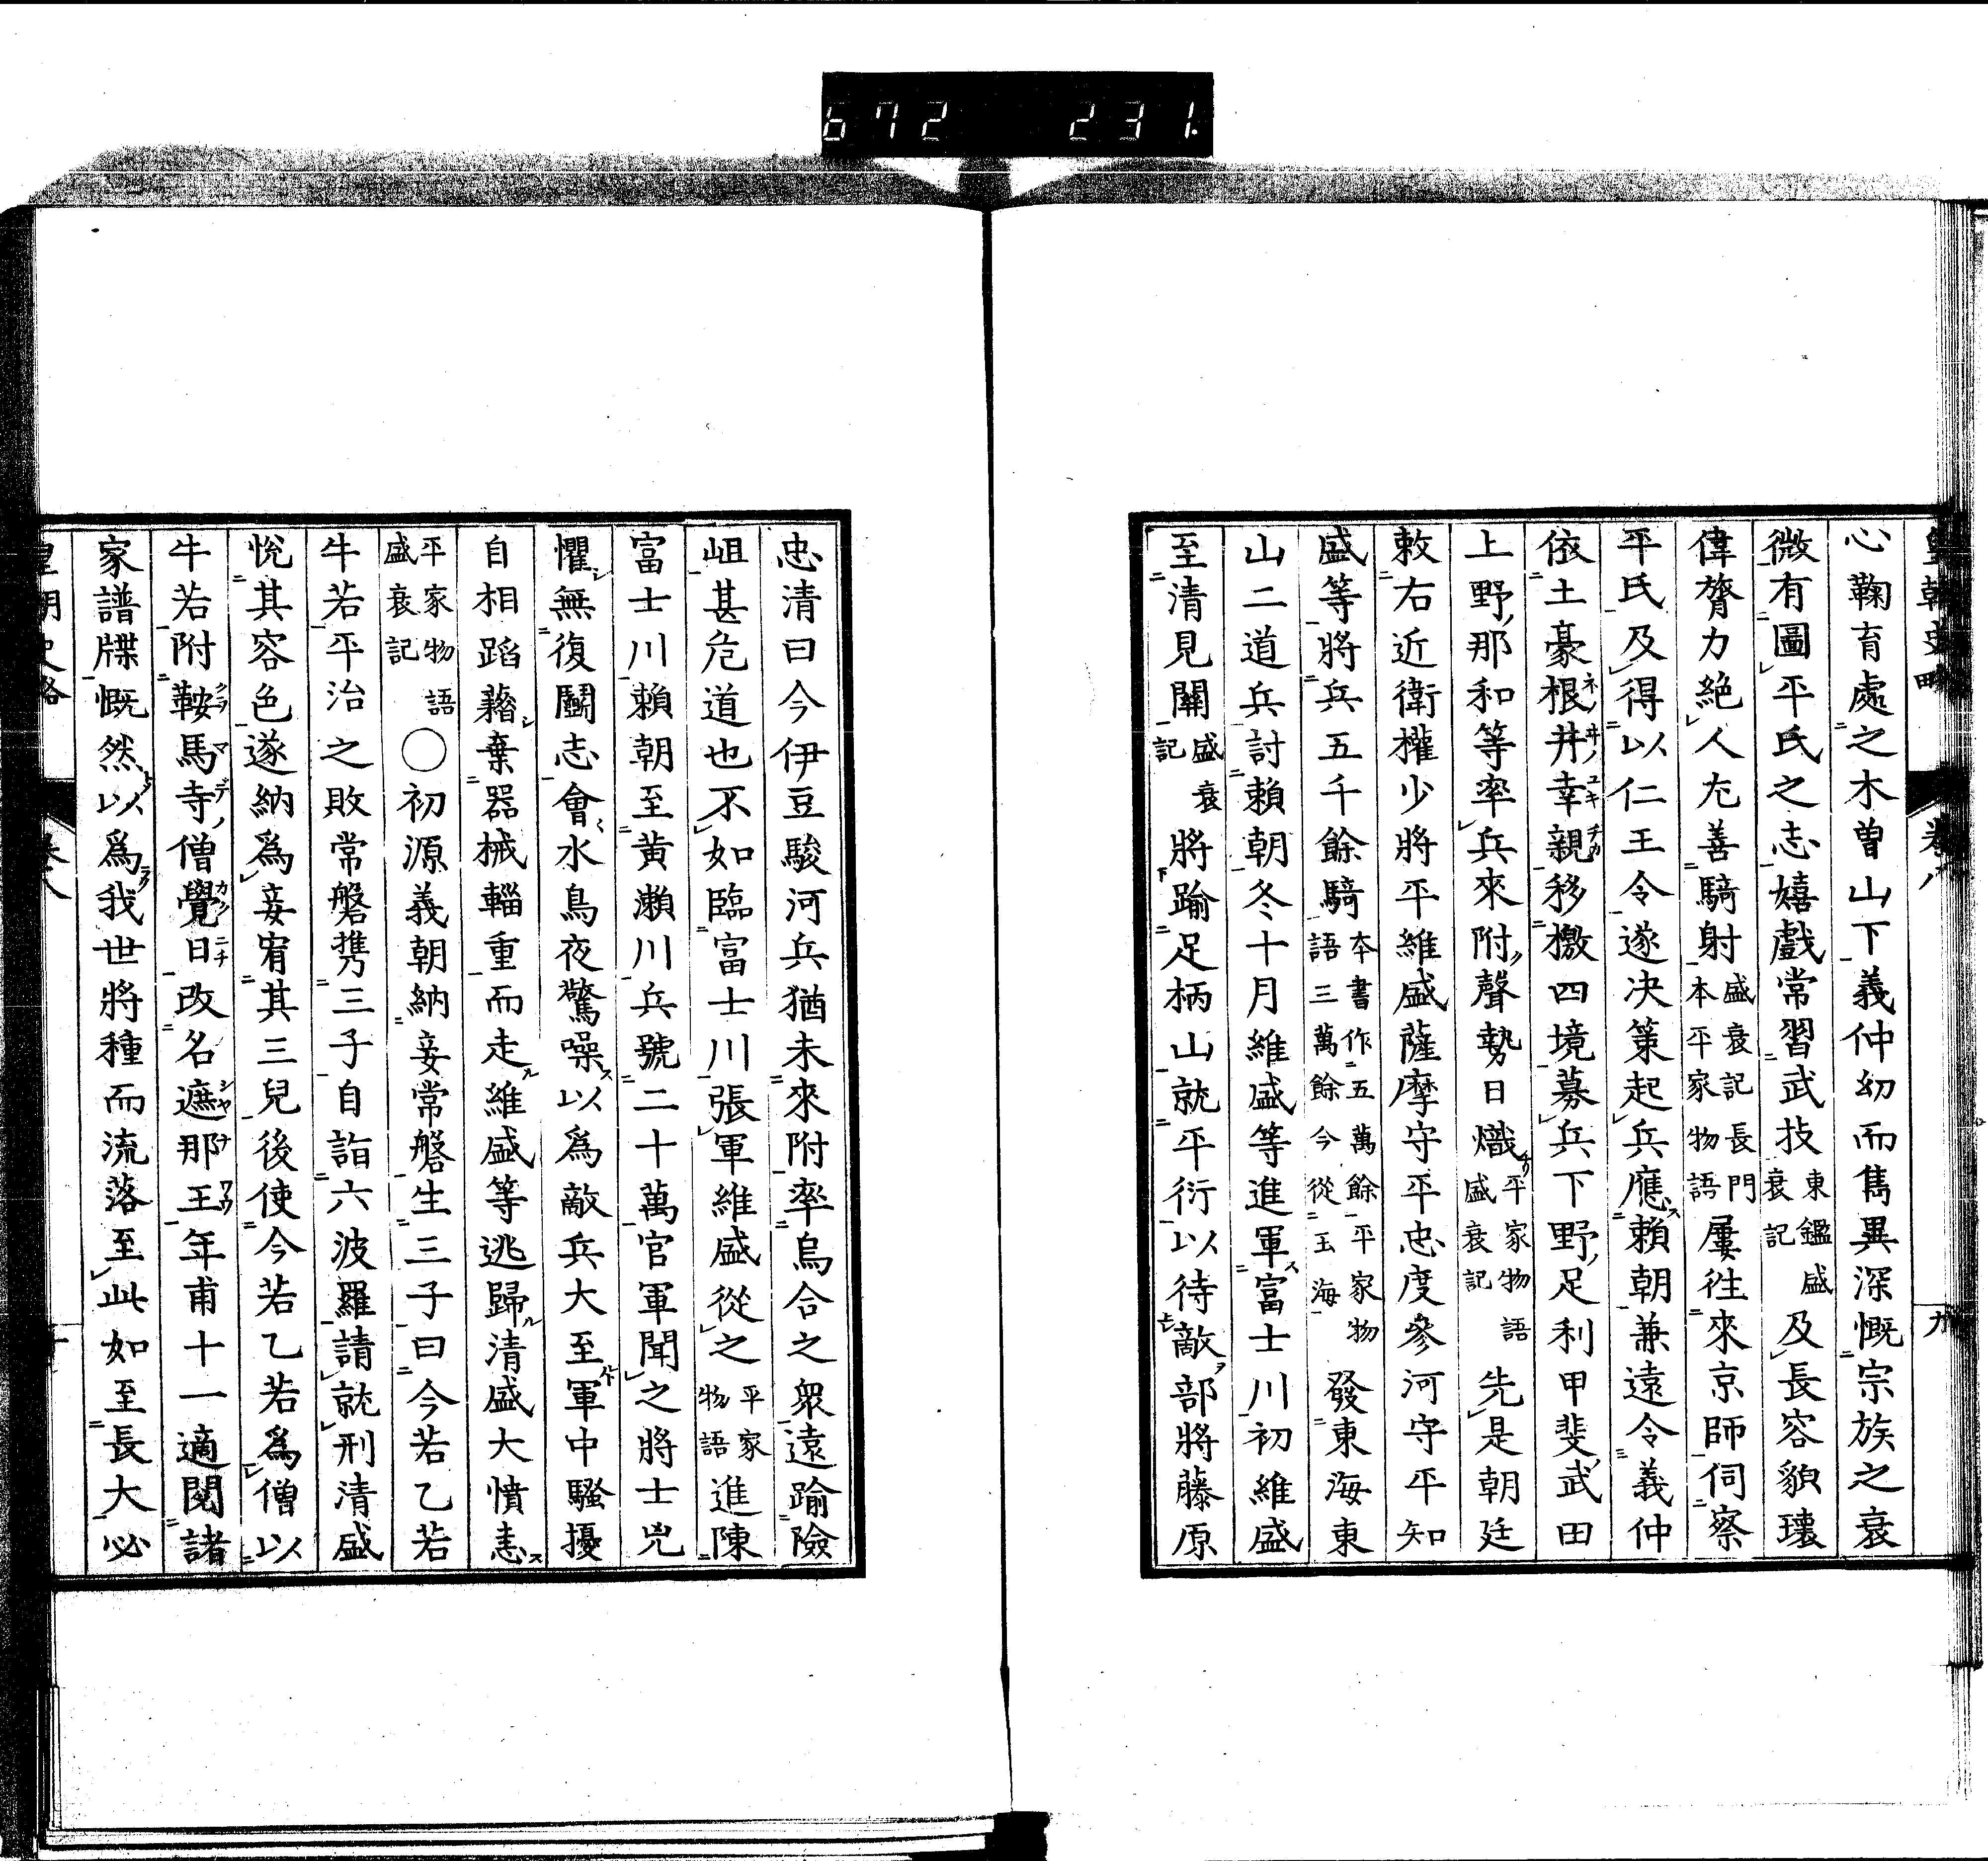 672 231.
皇朝史略 卷八 九
心鞠育處之木曾山下義仲幼而雋異深慨宗族之衰
微有圖平氏之志嬉戲常習武技東鑑盛衰記及長容貌瓌
偉膂力絶人尤善騎射盛衰記長門本平家物語屢往來京師伺察
平氏及得以仁王令遂决策起兵應賴朝兼遠令義仲
依土豪根井幸親移檄四境募兵下野足利甲斐武田
上野那和等率兵來附聲勢日熾平家物語盛衰記先是朝廷
敕右近衛權少將平維盛薩摩守平忠度參河守平知
盛等將兵五千餘騎本書作五萬餘平家物語三萬餘今從玉海發東海東
山二道兵討賴朝冬十月維盛等進軍富士川初維盛
至清見關盛衰記將踰足柄山就平衍以待敵部將藤原
忠清曰今伊豆駿河兵猶未來附率烏合之衆遠踰險
岨甚危道也不如臨富士川張軍維盛從之平家物語進陳
富士川賴朝至黄瀨川兵號二十萬官軍聞之將士兇
懼無復鬭志會水鳥夜驚噪以爲敵兵大至軍中騷擾
自相蹈藉棄器械輜重而走維盛等逃歸清盛大憤恚
平家物語盛衰記○初源義朝納妾常磐生三子曰今若乙若
牛若平治之敗常磐携三子自詣六波羅請就刑清盛
悅其容色遂納爲妾宥其三兒後使今若乙若爲僧以
牛若附鞍馬寺僧覺日改名遮那王年甫十一適閱諸
家譜牒慨然以爲我世將種而流落至此如至長大必
皇朝史略 卷八 十